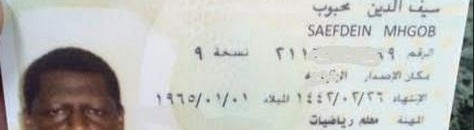 سيف الدين محبوب
SAEFDEIN MHGOB
الرقم ٢١١ ٦٩ نسخة ٩
مكان الإصدار
الإنتهاء ١٤٤٢/٠٢/٢٦ الميلاد ١٩٦٥/٠١/٠١
المهنة معلم رياضيات